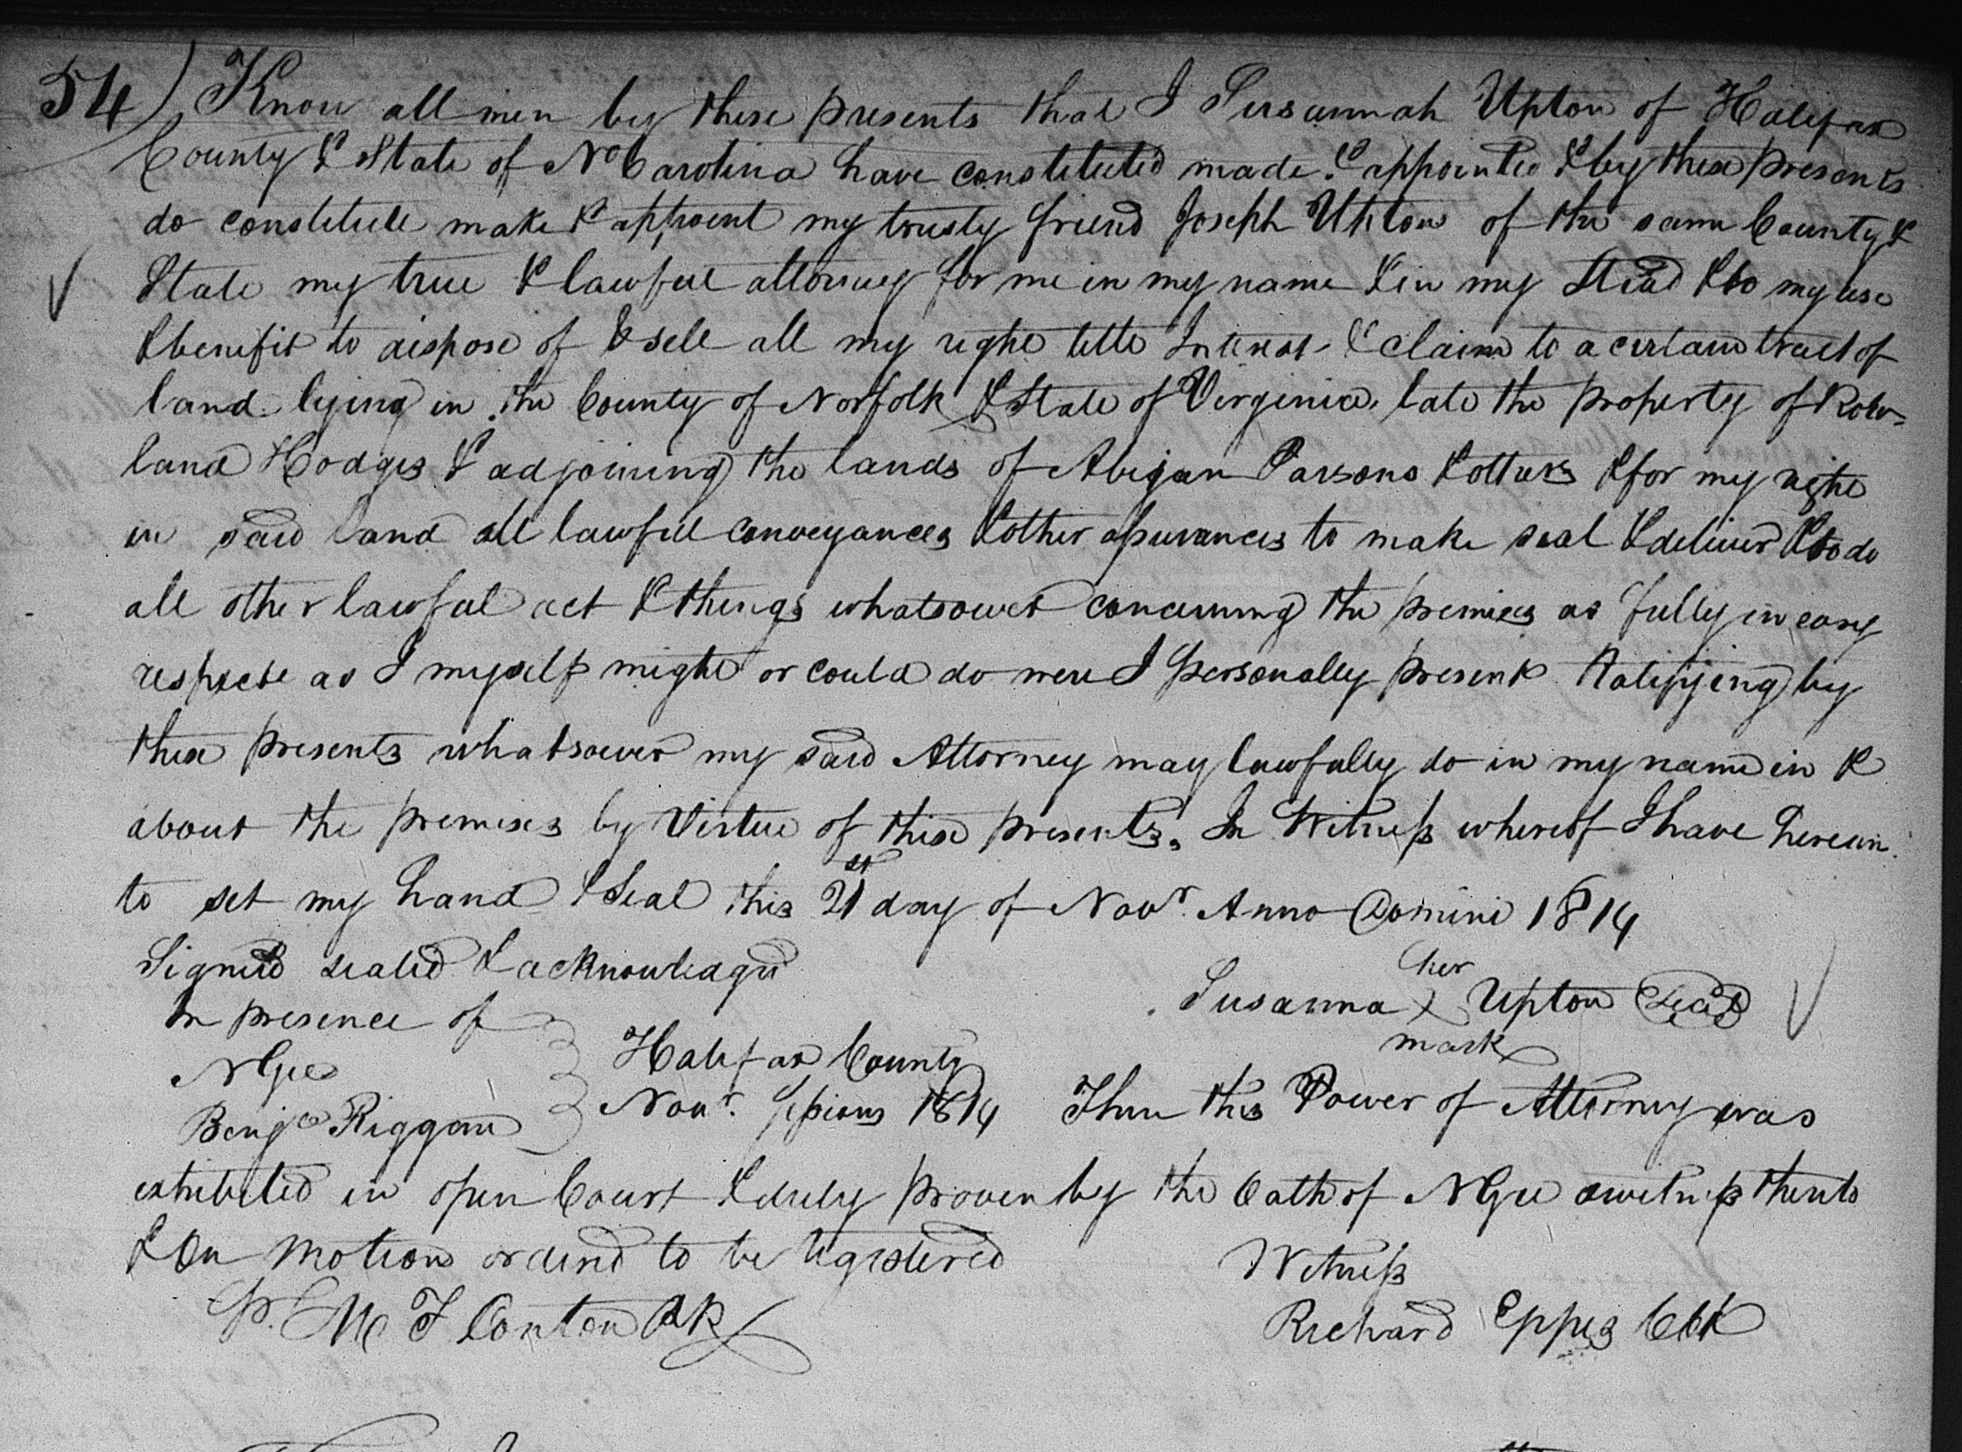 54) Know all men by these presents that I Susannah Upton of Halifax
County & State of No Carolina have constituted made & appointed & by these presents
do constitute make & appoint my trusty friend Joseph Upton of the same County &
State my true & lawful attorney for me in my name & in my Stead & to my use
& benefit to dispose of & sell all my right title Interest & claim to a certain tract of
land lying in the County of Norfolk & State of Virginia, late the property of Row-
land Hodges & adjoining the lands of Parsons & others & for my right
in said land all lawful conveyances & other assurances to make seal & deliver & to do
all other lawful act & things whatsoever concerning the premises as fully in every
respect as I myself might or could do were I personally present Ratifying by
these presents whatsoever my said Attorney may lawfully do in my name in &
about the premises by Virtue of these presents. In Witness whereof I have hereun
to set my hand & Seal this 21st day of Novr. Anno Domini 1814
Signed sealed & acknowledged
In presence of
N Gee
Benja Riggan
her
Susanna X Upton Seal
mark
Halifax County
Novr. Sessions 1814 Then this Power of Attorney was
exhibited in open Court & duly proven by the Oath of N Gee a witness thereto
& On motion ordered to be registered
Witness
Richard Eppes Clk